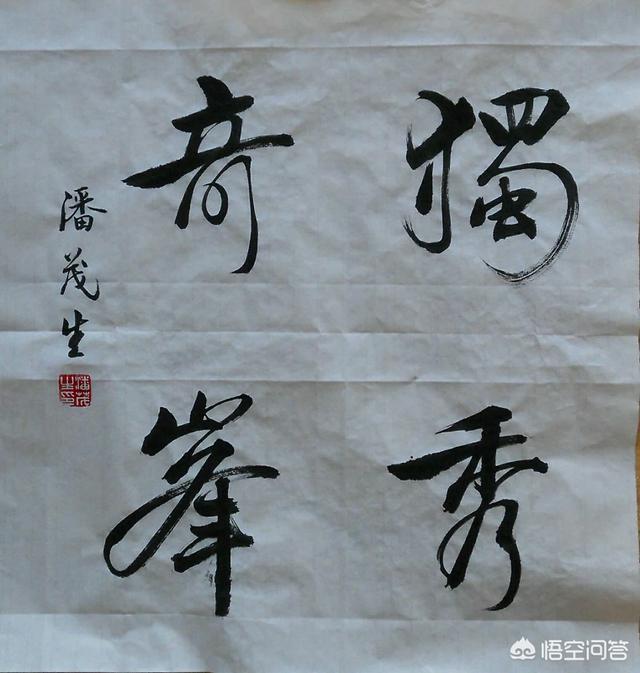 獨秀
奇峯
潘茂生
潘茂生印
悟空问答